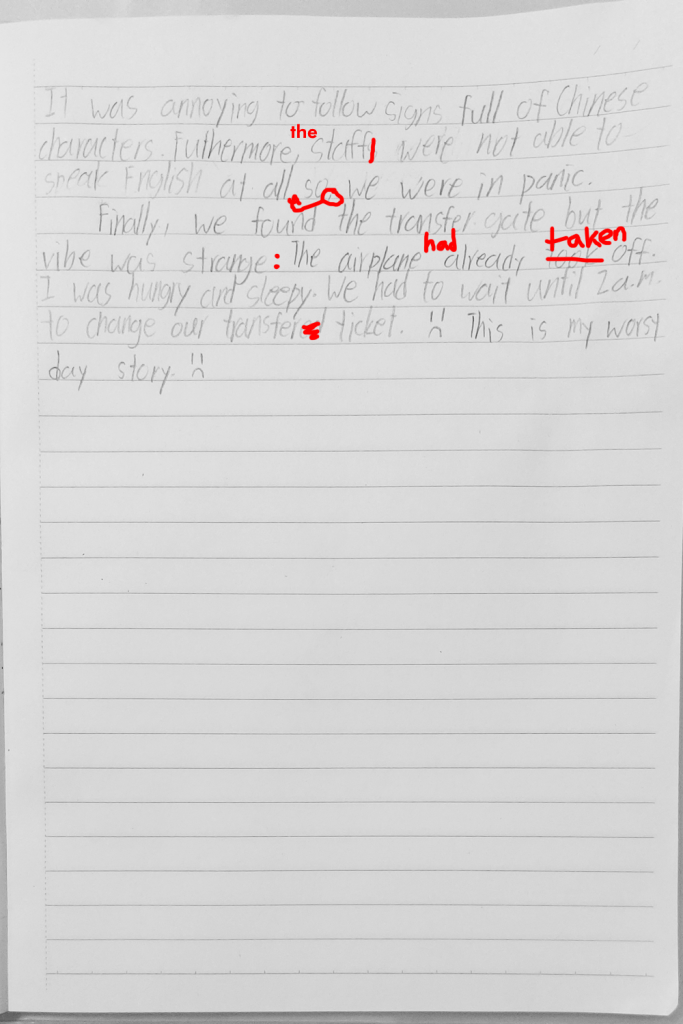 It was annoying to follow signs full of Chinese
the
characters. Futhermore, staffs were not able to
speak English at all so, we were in panic.
Finally, we found the transfer gate but the
had taken
vibe was strange: The airplane already took off.
I was hungry and sleepy. We had to wait until 2 a.m.
to change our transfered ticket. :( This is my worst
day story. :(